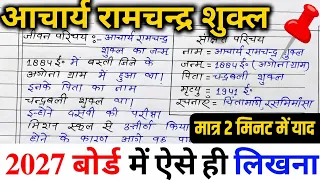 आचार्य रामचन्द्र शुक्ल
जीवन परिचय :- आचार्य रामचन्द्र
शुक्ल का जन्म
1884ई० में बस्ती जिले के
अगोना ग्राम में हुआ था।
इनके पिता का नाम
चन्द्रबली शुक्ल था।
इन्होंने दसवीं की परीक्षा
मिशन स्कूल से उत्तीर्ण किया
होने के कारण आगे
नाम = आचार्य रामचन्द्र शुक्ल
जन्म = 1884ई० (अगोना ग्राम)
पिता = चन्द्रबली शुक्ल
मृत्यु = 1941 ई०
रचनाएं = चिंतामणि, रसमिमांसा
मात्र 2 मिनट में याद
2027 बोर्ड में ऐसे ही लिखना